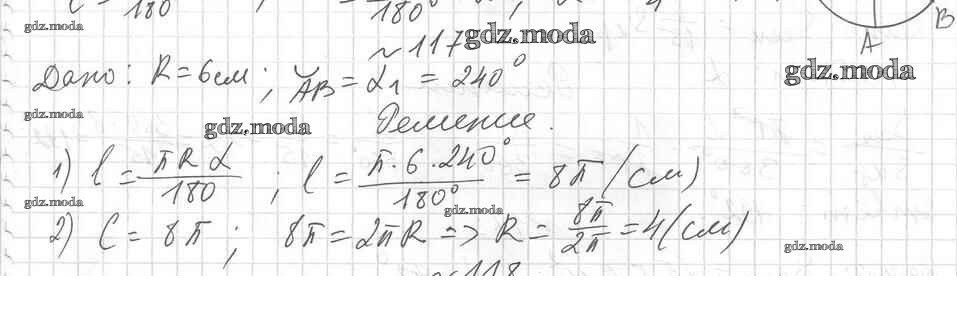 180 180°
gdz.moda
A B
~ 117 gdz.moda
Дано: R = 6см; AB = α₁ = 240° gdz.moda
gdz.moda
gdz.moda Решение.
1) l = πRα / 180; l = π · 6 · 240° / 180° = 8π (см)
gdz.moda gdz.moda
2) C = 8π; 8π = 2πR => R = 8π / 2π = 4 (см)
gdz.moda